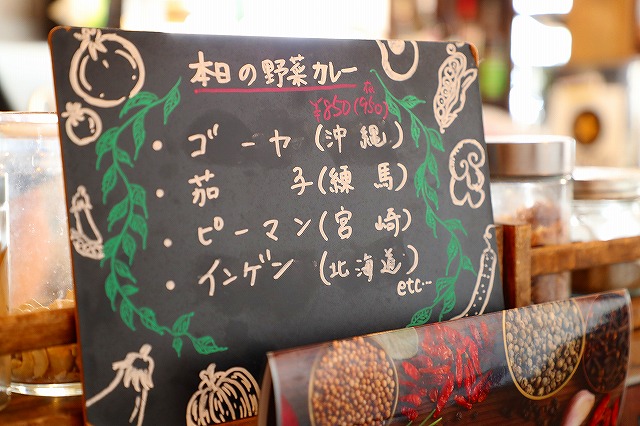 本日の野菜カレー
¥850(950)
・ゴーヤ(沖縄)
・茄子(練馬)
・ピーマン(宮崎)
・インゲン(北海道)
etc…